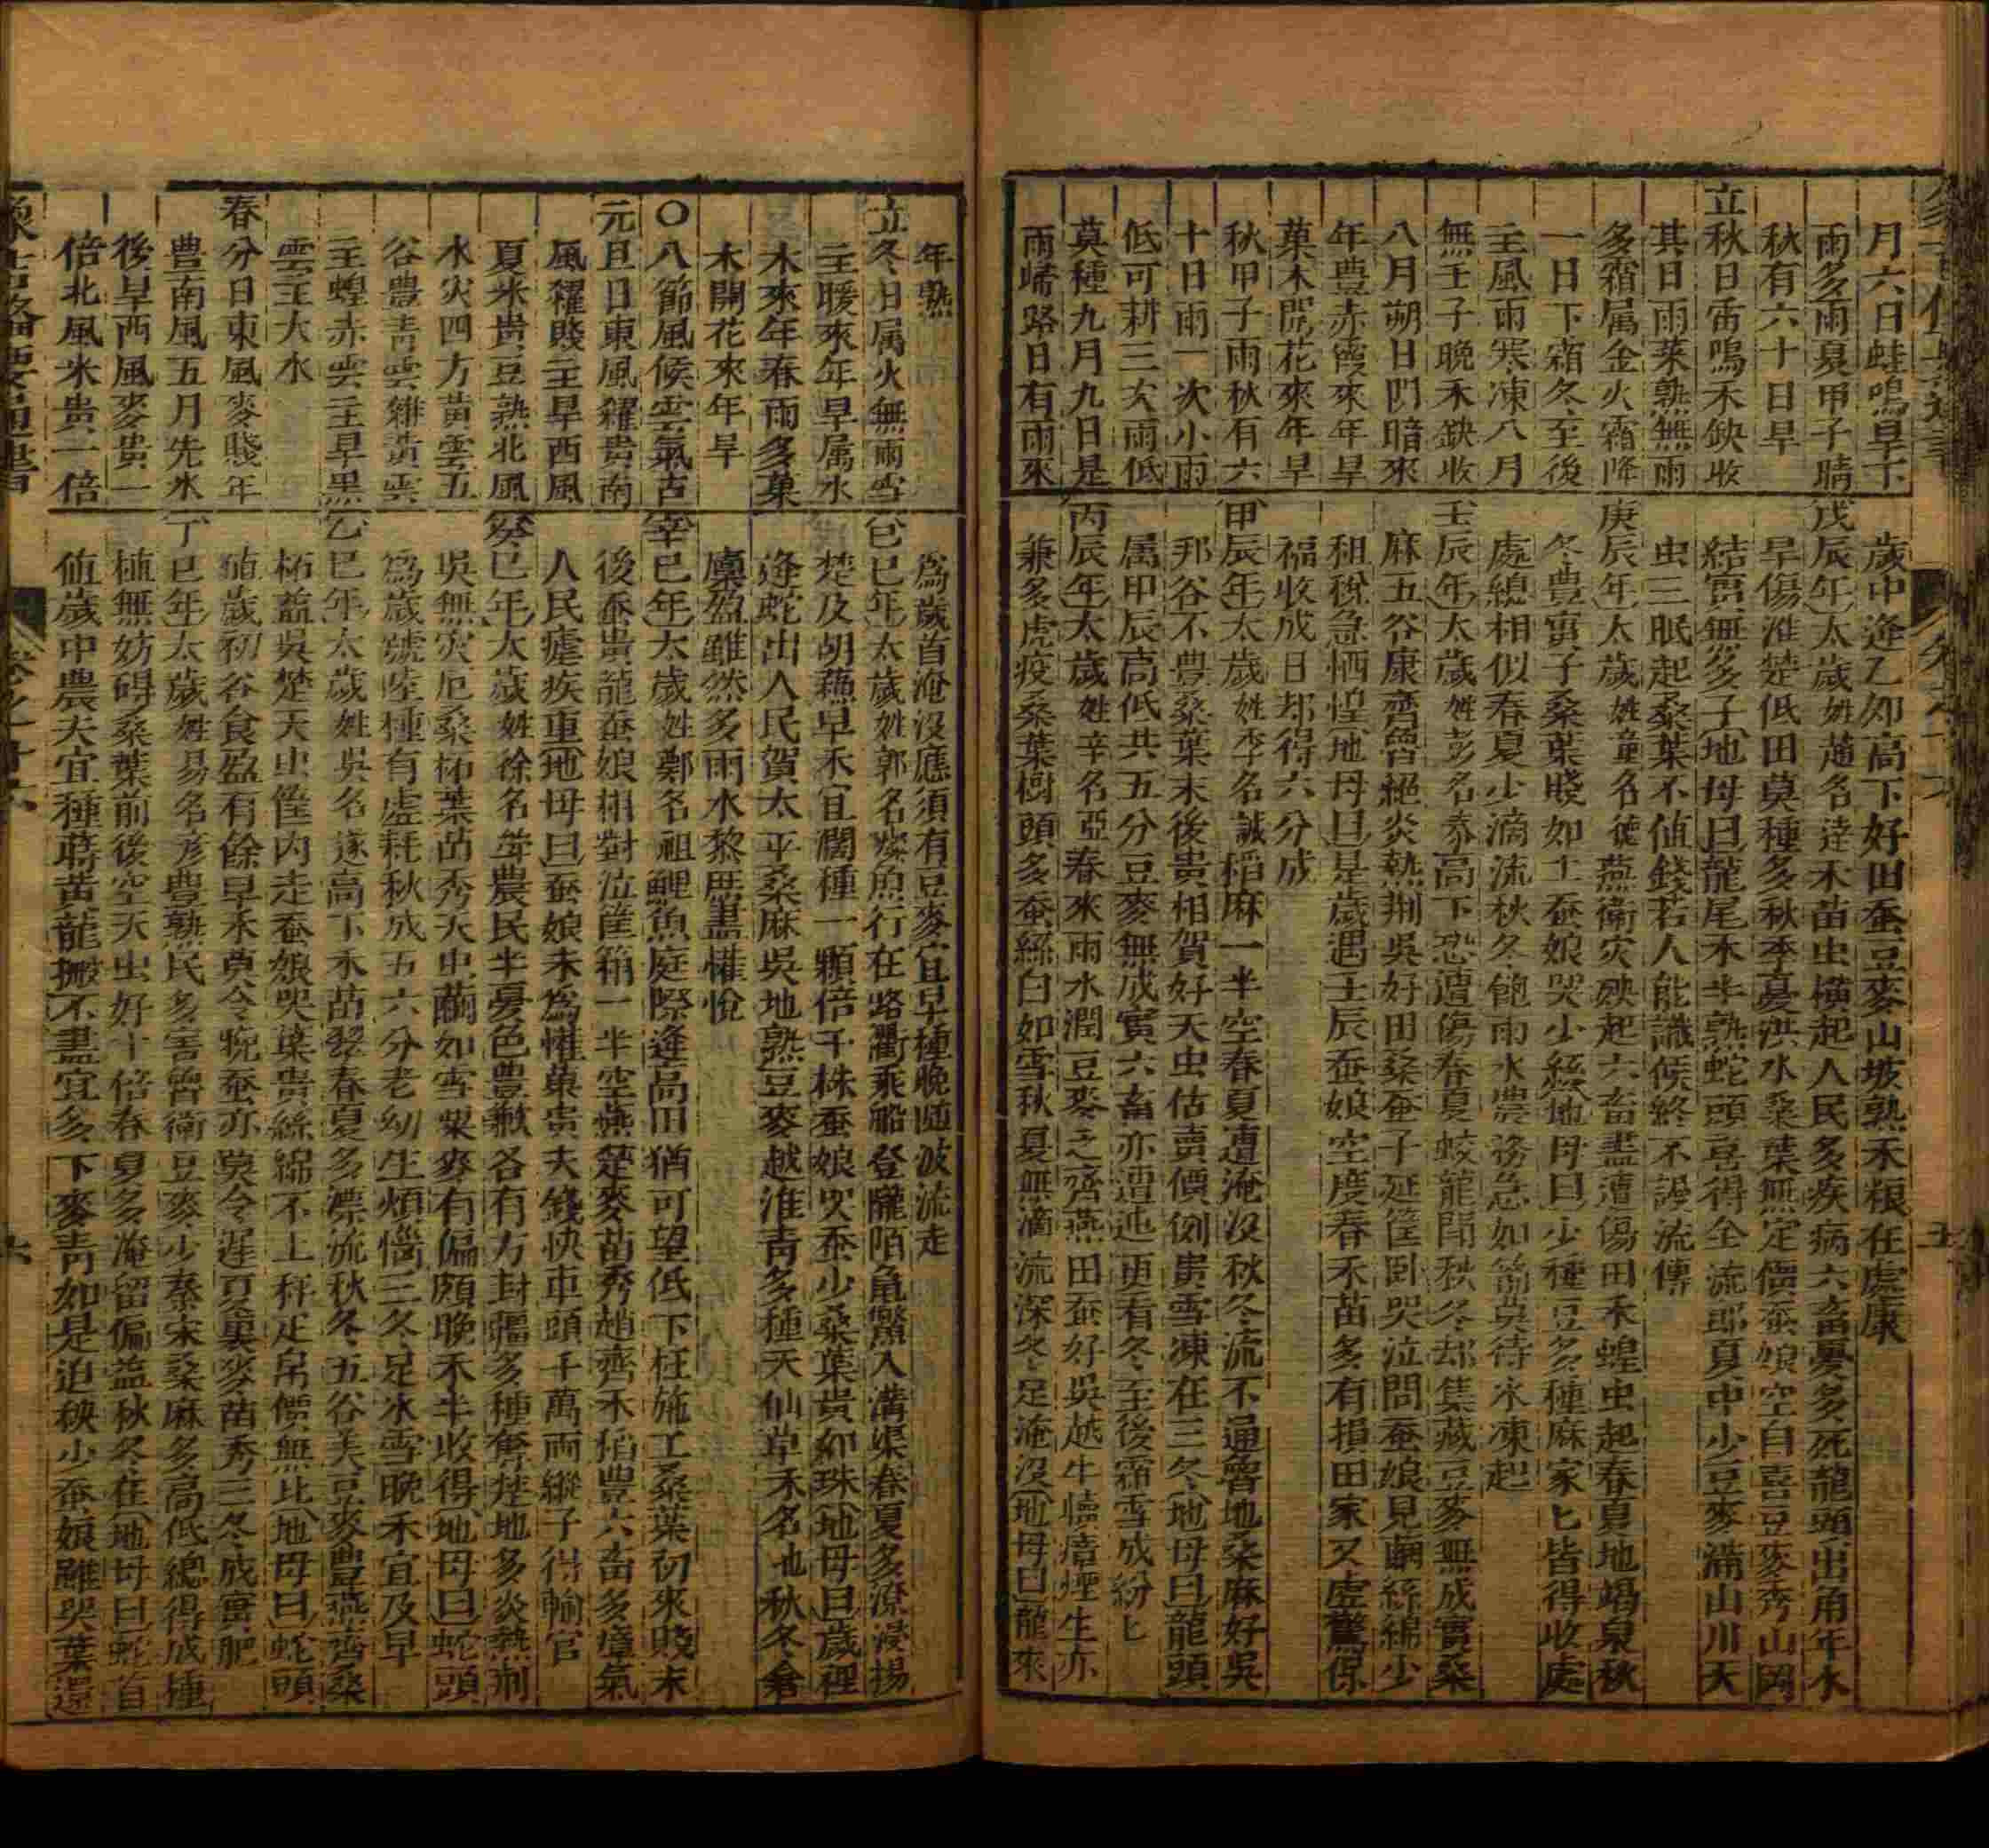 月六日蛙鳴旱下
雨多雨夏甲子晴
秋有六十日旱
立秋日雷鳴禾鈌收
其日雨菜熟無雨
多霜属金火霜降
一日下霜冬至後
主風雨寒凍八月
無壬子晚禾鈌收
八月朔日門暗來
年豊赤霞來年旱
菓木開花來年旱
秋甲子雨秋有六
十日雨一次小雨
低可耕三次雨低
莫種九月九日是
雨歸路日有雨來
歲中逢乙卯高下好田蚕豆麥山坡熟禾粮在處康
戊辰年太歲姓趙名達禾苗虫横起人民多疾病六畜憂多死龍頭出角年水
旱傷淮楚低田莫種多秋季憂洪水桑葉無定價蚕娘空白喜豆麥秀山岡
結實無多子地母曰龍尾禾半熟蛇頭喜得全流郎夏中少豆麥滿山川天
虫三眠起桑葉不值錢若人能識候終不誤流傳
庚辰年太歲姓童名徳燕衛灾殃起六畜盡遭傷田禾蝗虫起春夏地竭泉秋
冬豊實子桑葉賤如土蚕娘哭少絲地母曰少種豆多種麻家匕皆得收處
處總相似春夏少滴流秋冬飽雨水農務急如箭莫待氷凍起
壬辰年太歲姓彭名泰高下恐遭傷春夏蛟龍鬧秋冬却集藏豆麥無成實桑
麻五谷康齊魯絕炎熱荆吳好田桑蚕子延筐卧哭泣問蚕娘見繭絲綿少
租稅急恓惶地母曰是歲遇壬辰蚕娘空度春禾苗多有損田家又虚驚保
福收成日却得六分成
甲辰年太歲姓李名誠稻麻一半空春夏遭淹沒秋冬流不通魯地桑麻好吳
邦谷不豊桑葉末後貴相賀好天虫估賣價例貴雪凍在三冬地母曰龍頭
属甲辰高低共五分豆麥無成實六畜亦遭迍更看冬至後霜雪成紛匕
丙辰年太歲姓辛名亞春來雨水潤豆麥之齊燕田蚕好吳越牛犢瘴煙生亦
兼多虎疫桑葉樹頭多蚕絲白如雪秋夏無滴流深冬足淹沒地母曰龍來
年熟
立冬日属火無雨雪
主暖來年旱属水
木來年春雨多菓
木開花來年旱
〇八節風候雲氣占
元旦日東風糴貴南
風糴賤主旱西風
夏米貴豆熟北風
水灾四方黄雲五
谷豊青雲雜黄雲
主蝗赤雲主旱黒
雲主大水
春分日東風麥賤年
豊南風五月先水
後旱西風麥貴一
倍北風米貴一倍
為歲首淹没應須有豆麥宜早種晚隨波流走
己巳年太歲姓郭名燦魚行在路衢乘船登隴陌亀鱉入溝渠春夏多潦浸揚
楚及胡蘓早禾宜濶種一顆倍千株蚕娘哭蚕少桑葉貴如珠地母曰歲裡
逢蛇出人民賀太平桑麻吳地熟豆麥越淮青多種天仙草禾名地秋冬倉
廪盈雖然多雨水黎庶盡懽悅
辛巳年太歲姓鄭名祖鯉魚庭際逢高田猶可望低下枉施工桑葉初來賤末
後蚕貴龍蚕娘相對泣筐箱一半空燕楚麥苗秀趙齊禾稻豊六畜多瘴氣
人民瘧疾重地母曰蚕娘未為懽菓貴夫錢快車頭千萬兩縱子得輸官
癸巳年太歲姓徐名单農民半憂色豊歉各有方封疆多種奪楚地多炎熱荆
吳無灾厄桑柘葉苗秀天虫繭如雪粟麥有偏頗晚禾半收得地母曰蛇頭
為歲號陸種有虚耗秋成五六分老幼生煩惱三冬足氷雪晚禾宜及早
乙巳年太歲姓吳名遂高下禾苗翠春夏多漂流秋冬五谷美豆麥豊燕齊桑
柘益吳楚天虫筐内走蚕娘哭葉貴絲綿不上秤疋帛價無比地母曰蛇頭
值歲初谷食盈有餘早禾莫令晚蚕亦莫令遲夏裏麥苗秀三冬成實肥
丁巳年太歲姓易名彦豊熟民多害魯衛豆麥少秦宋桑麻多高低總得成種
植無妨碍桑葉前後空天虫好十倍春夏多淹留偏益秋冬在地母曰蛇首
值歲中農夫宜種蒔黄龍搬不盡宜多下麥青如是迫秧少蚕娘雖哭葉還